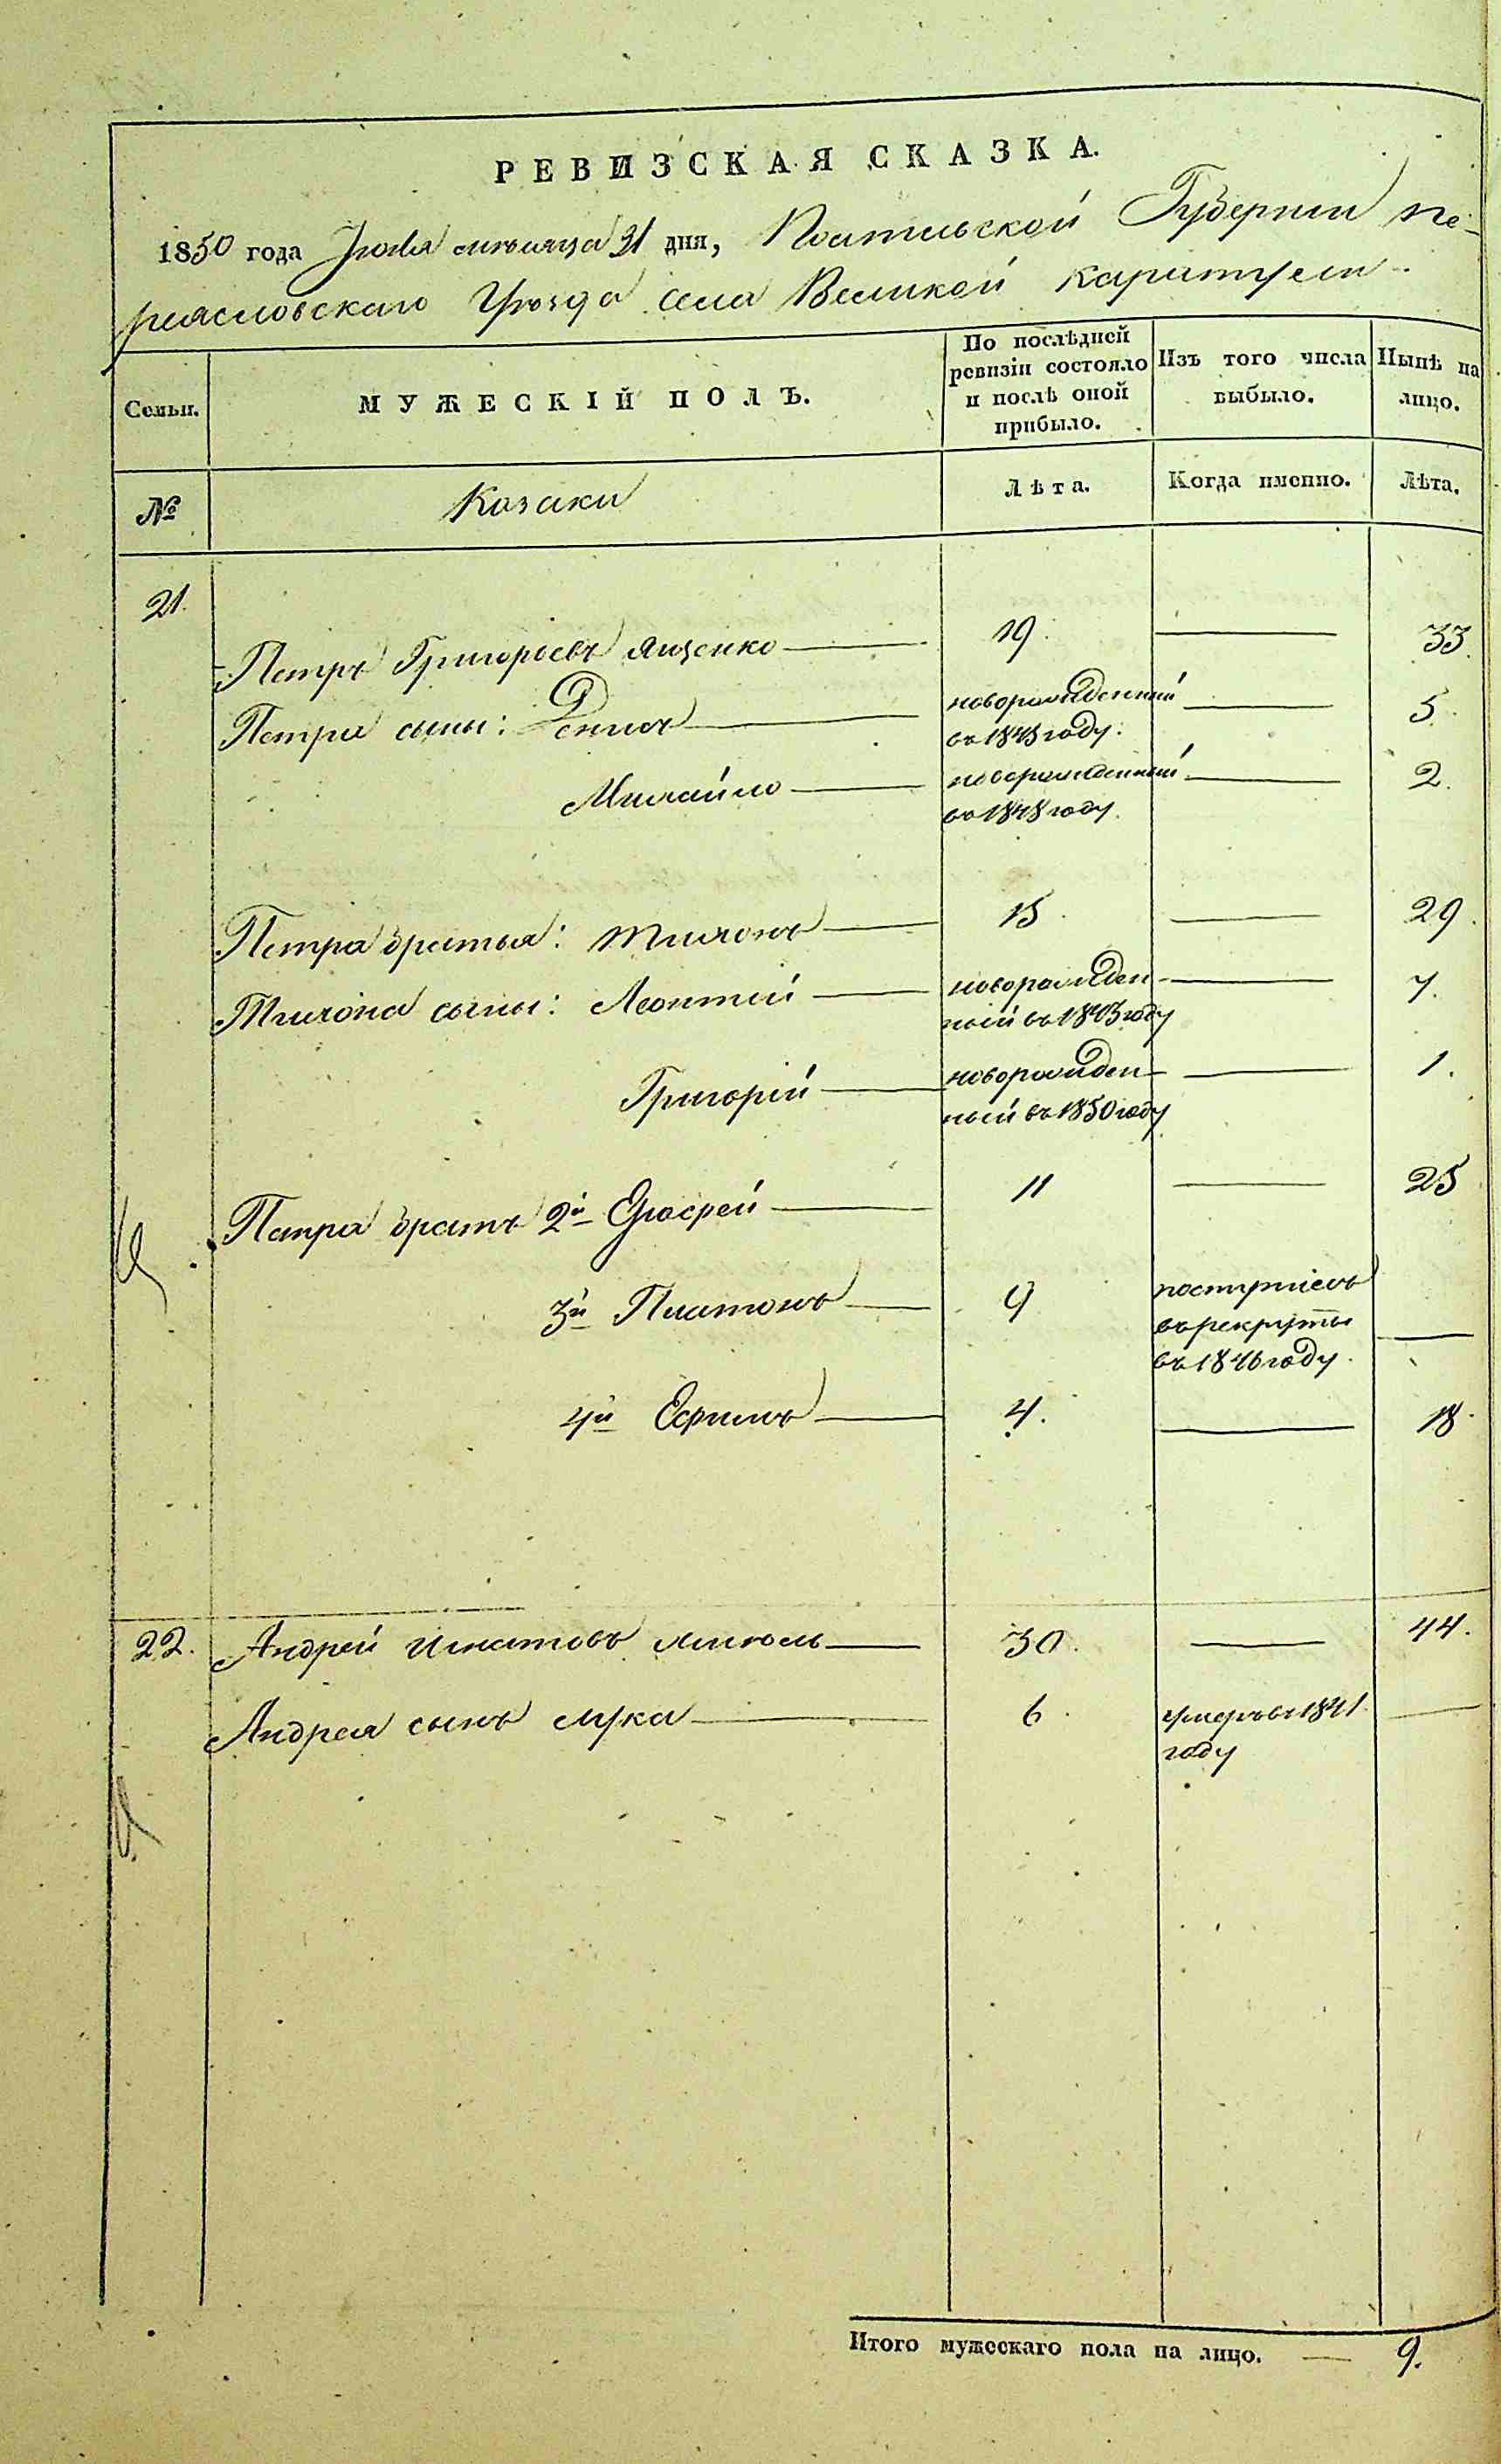 РЕВИЗСКАЯ СКАЗКА.
1850 года Июля месяца 31 дня, Полтавской Губернии Пе-
реясловскаго Уезда села Великой Каратули
Семьи. МУЖЕСКІЙ ПОЛЪ. По послѣдней ревизіи состояло и послѣ оной прибыло. Изъ того числа выбыло. Нынѣ на лицо.
№ Козаки Лѣта. Когда именно. Лѣта.
21.
Петръ Григорьевъ Яценко 19. 33.
Петра сыны: Денисъ новорожденный въ 1845 году. 5.
Михайло новорожденный въ 1848 году. 2.
Петра братья: Тихонъ 15. 29.
Тихона сыны: Леонтій новорожденный въ 1843 году 7.
Григорій новорожденный въ 1850 году 1.
Петра братъ 2й 11 25
3й Платонъ 9 поступилъ въ рекруты въ 1846 году.
4й Ефимъ 4. 18.
22. Андрей Игнатовъ 30. 44.
Андрея сынъ Лука 6. умеръ въ 1841 году
Итого мужескаго пола на лицо. — 9.